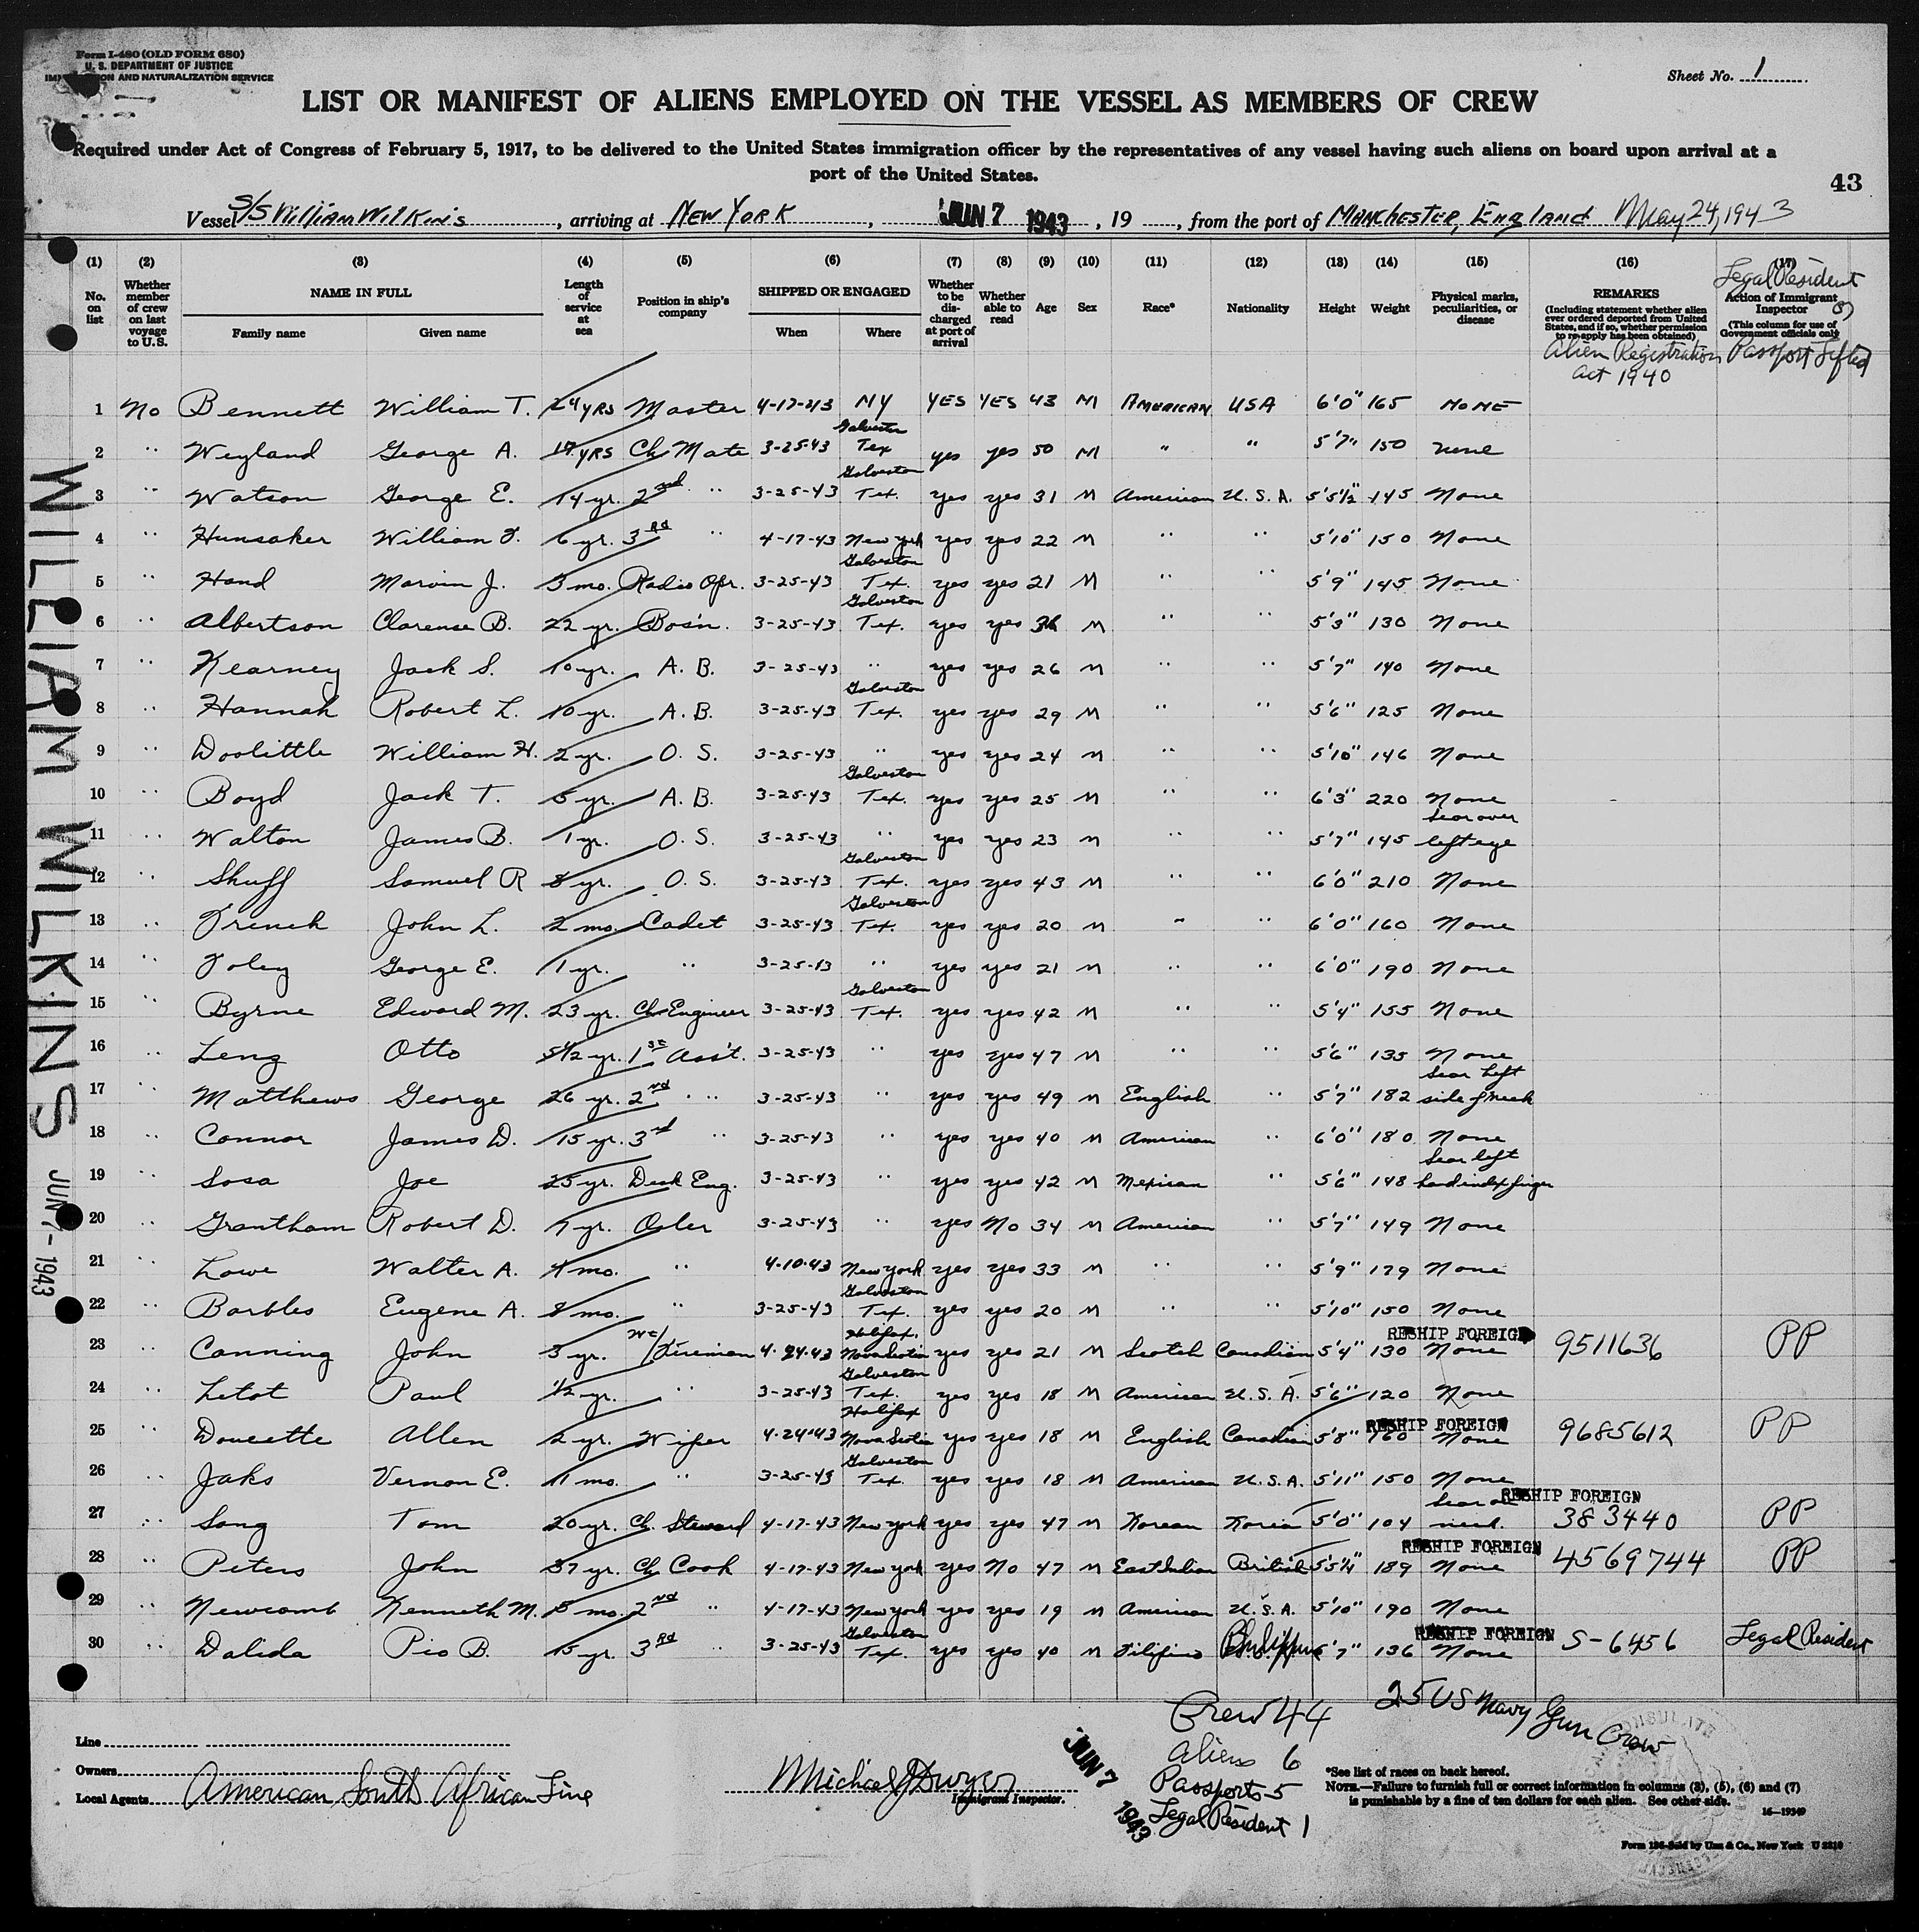 Form I-480 (OLD FORM 680)
U. S. DEPARTMENT OF JUSTICE
IMMIGRATION AND NATURALIZATION SERVICE
Sheet No. 1
LIST OR MANIFEST OF ALIENS EMPLOYED ON THE VESSEL AS MEMBERS OF CREW
Required under Act of Congress of February 5, 1917, to be delivered to the United States immigration officer by the representatives of any vessel having such aliens on board upon arrival at a
port of the United States.
43
Vessel S/S William Wilkins, arriving at New York, JUN 7 1943, 19, from the port of Manchester, England May 24, 1943
(1) (2) (3) (4) (5) (6) (7) (8) (9) (10) (11) (12) (13) (14) (15) (16) (17)
No. on list
Whether member of crew on last voyage to U.S.
NAME IN FULL
Family name Given name
Length of service at sea
Position in ship's company
SHIPPED OR ENGAGED
When Where
Whether to be discharged at port of arrival
Whether able to read
Age
Sex
Race*
Nationality
Height
Weight
Physical marks, peculiarities, or disease
REMARKS
(Including statement whether alien ever ordered deported from United States, and if so, whether permission to re-apply has been obtained)
Alien Registration Act 1940
Legal Resident
Action of Immigrant Inspector
(This column for use of Government officials only)
Passport Lifted
1 No Bennett William T. 24 YRS Master 4-17-43 NY YES YES 43 M American USA 6'0" 165 NONE
2 " Weyland George A. 17 YRS Ch Mate 3-25-43 Galveston Tex yes yes 50 M " " 5'7" 150 none
3 " Watson George E. 14 yr. 2nd " 3-25-43 Galveston Tex. yes yes 31 M American U.S.A. 5'5½" 145 None
4 " Hunsaker William F. 6 yr. 3rd " 4-17-43 New York yes yes 22 M " " 5'10" 150 None
5 " Hand Marvin J. 3 mo. Radio Opr. 3-25-43 Galveston Tex. yes yes 21 M " " 5'9" 145 None
6 " Albertson Clarense B. 22 yr. Bos'n. 3-25-43 Galveston Tex. yes yes M " " 5'3" 130 None
7 " Kearney Jack S. 10 yr. A.B. 3-25-43 " yes yes 26 M " " 5'7" 140 None
8 " Hannah Robert L. 10 yr. A.B. 3-25-43 Galveston Tex. yes yes 29 M " " 5'6" 125 None
9 " Doolittle William H. 2 yr. O.S. 3-25-43 " yes yes 24 M " " 5'10" 146 None
10 " Boyd Jack T. 5 yr. A.B. 3-25-43 Galveston Tex. yes yes 25 M " " 6'3" 220 None
11 " Walton James B. 1 yr. O.S. 3-25-43 " yes yes 23 M " " 5'7" 145 Scar over left eye
12 " Shuff Samuel R 8 yr. O.S. 3-25-43 Galveston Tex. yes yes 43 M " " 6'0" 210 None
13 " French John L. 2 mo. Cadet 3-25-43 Galveston Tex. yes yes 20 M " " 6'0" 160 None
14 " Foley George E. 1 yr. " 3-25-43 " yes yes 21 M " " 6'0" 190 None
15 " Byrne Edward M. 23 yr. Ch Engineer 3-25-43 Galveston Tex. yes yes 42 M " " 5'4" 155 None
16 " Leng Otto yr. 1st Ass't. 3-25-43 " yes yes 47 M " " 5'6" 135 None
17 " Matthews George 26 yr. 2nd " 3-25-43 " yes yes 49 M English " 5'7" 182 Scar left side of neck
18 " Connor James D. 15 yr. 3rd " 3-25-43 " yes yes 40 M American " 6'0" 180 None
19 " Sosa Joe 25 yr. Deck Eng. 3-25-43 " yes yes 42 M Mexican " 5'6" 148 Scar left hand index finger
20 " Grantham Robert D. 7 yr. Oiler 3-25-43 " yes No 34 M American " 5'7" 149 None
21 " Lowe Walter A. mo. " 4-10-43 New York yes yes 33 M " " 5'9" 179 None
22 " Barbles Eugene A. 8 mo. " 3-25-43 Galveston Tex. yes yes 20 M " " 5'10" 150 None
23 " Canning John 3 yr. Fireman 4-24-43 Halifax. Nova Scotia yes yes 21 M Scotch Canadian 5'4" 130 None RESHIP FOREIGN 9511636 PP
24 " Letot Paul ½ yr. " 3-25-43 Galveston Tex. yes yes 18 M American U.S.A. 5'6" 120 None
25 " Doucette Allen 2 yr. Wiper 4-24-43 Halifax Nova Scotia yes yes 18 M English Canadian 5'8" 160 None RESHIP FOREIGN 9685612 PP
26 " Jaks Vernon E. 11 mo. " 3-25-43 Galveston Tex. yes yes 18 M American U.S.A. 5'11" 150 None
27 " Song Tom 20 yr. Ch. Steward 4-17-43 New York yes yes 47 M Korean Korea 5'0" 104 Scar on neck. RESHIP FOREIGN 383440 PP
28 " Peters John 37 yr. Ch Cook 4-17-43 New York yes No 47 M East Indian British 5'5¼" 189 None RESHIP FOREIGN 4569744 PP
29 " Newcomb Kenneth M. mo. 2nd " 4-17-43 New York yes yes 19 M American U.S.A. 5'10" 190 None
30 " Dalida Pio B. 15 yr. 3rd " 3-25-43 Galveston Tex. yes yes 40 M Filipino 5'7" 136 None RESHIP FOREIGN S-6456 Legal Resident
WILLIAM WILKINS JUN 7- 1943
Crew 44
25 US Navy Gun Crew
Aliens 6
Passports-5
Legal Resident 1
JUN 7 1943
Line
Owners
Local Agents American South African Line
Michael J Dwyer
Immigrant Inspector.
*See list of races on back hereof.
NOTE.—Failure to furnish full or correct information in columns (3), (5), (6) and (7)
is punishable by a fine of ten dollars for each alien. See other side.
16—19349
Form Sold by Unz & Co., New York